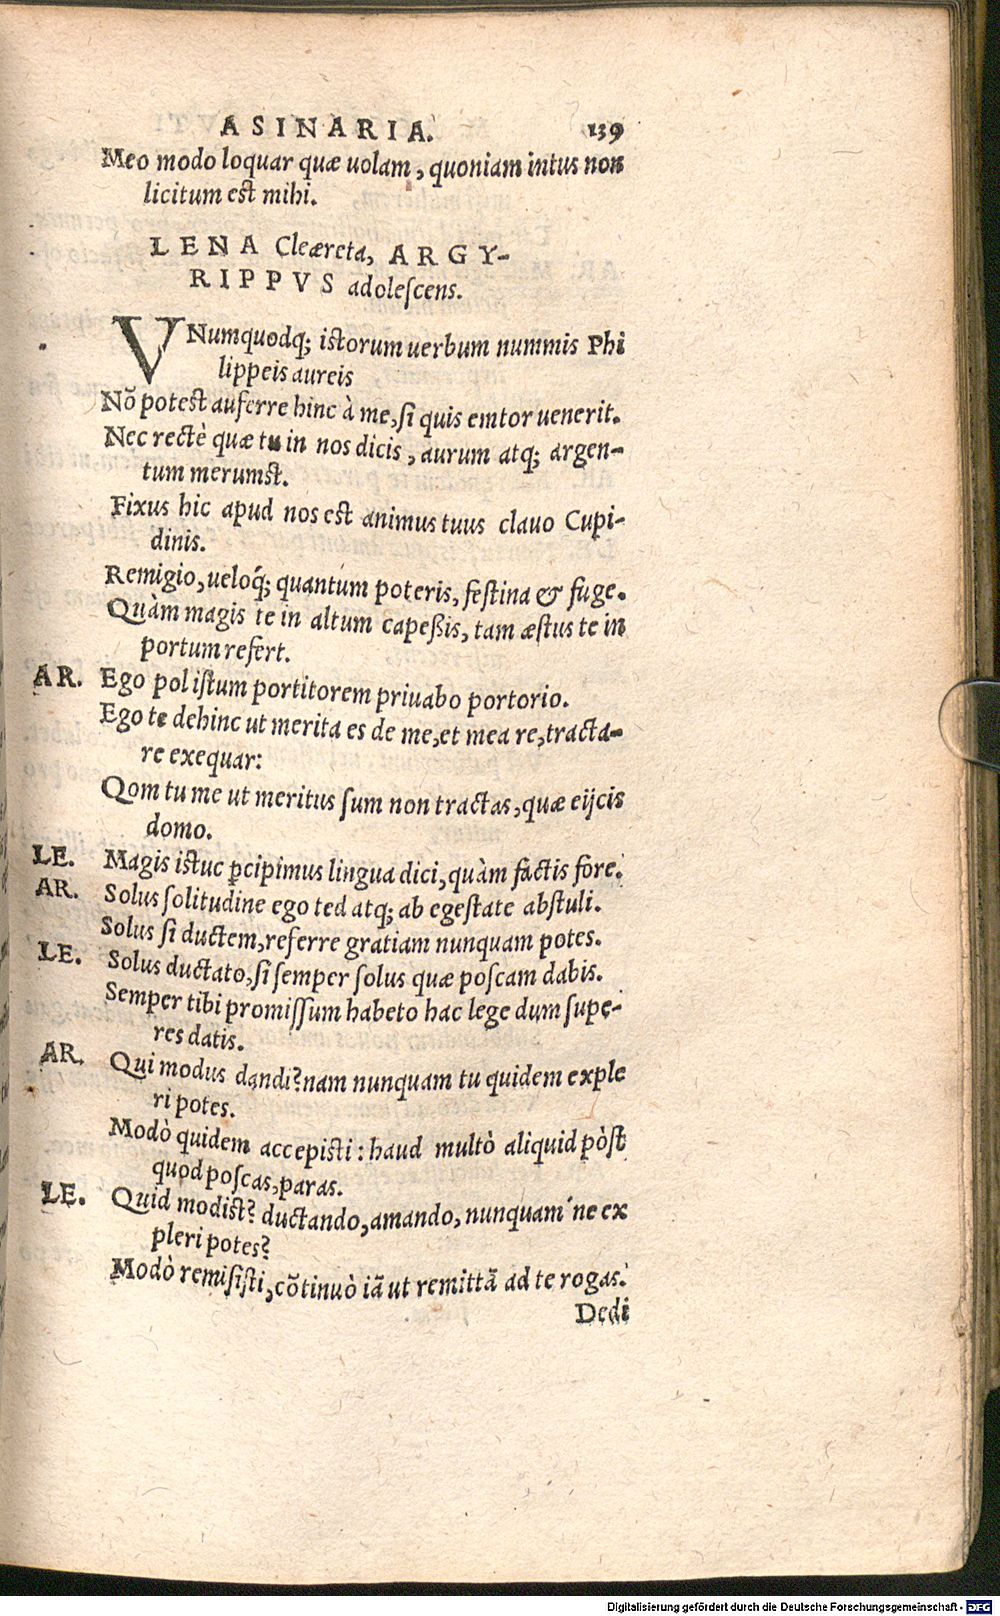 ASINARIA. 139
Meo modo loquar quæ uolam, quoniam intus non
licitum est mihi.
LENA Cleæreta, ARGY-
RIPPVS adolescens.
VNumquodq; istorum uerbum nummis Phi
lippeis aureis
Nõ potest auferre hinc à me, si quis emtor uenerit.
Nec rectè quæ tu in nos dicis, aurum atq; argen-
tum merumst.
Fixus hic apud nos est animus tuus clauo Cupi-
dinis.
Remigio, ueloq́; quantum poteris, festina & fuge.
Quàm magis te in altum capeßis, tam æstus te in
portum refert.
AR. Ego pol istum portitorem priuabo portorio.
Ego te dehinc ut merita es de me, et mea re, tracta-
re exequar:
Qom tu me ut meritus sum non tractas, quæ eijcis
domo.
LE. Magis istuc ꝑcipimus lingua dici, quàm factis fore.
AR. Solus solitudine ego ted atq; ab egestate abstuli.
Solus si ductem, referre gratiam nunquam potes.
LE. Solus ductato, si semper solus quæ poscam dabis.
Semper tibi promissum habeto hac lege dum supe-
res datis.
AR. Qui modus dandi? nam nunquam tu quidem exple
ri potes.
Modò quidem accepisti: haud multò aliquid pòst
quod poscas, paras.
LE. Quid modist? ductando, amando, nunquam'ne ex
pleri potes?
Modò remisisti, cõtinuò iã ut remittã ad te rogas.
Dedi
Digitalisierung gefördert durch die Deutsche Forschungsgemeinschaft - DFG